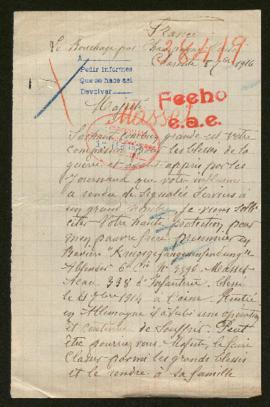 France
Le Bouchage par
Charente 1916
28419
A
Pedir informes
Que se hace así
Devolver
Fecho
e.a.e.
Majesté
Massey
Sachant combien grande est votre
compassion pour les blessés de la
guerre et ayant appris par les
journaux que votre influence
a rendu de signalés services à
un grand nombre, je viens solli
citer Votre haute protection pour
mon pauvre frère prisonnier en
Bavière "Kriegsgefangenensendung"
No 3396. Masset
Jean 338 d'Infanterie. Blessé
le 1914 à
en Allemagne il a subi une opération
et continue de souffrir. Peut
être pourriez vous Majesté, le faire
Classer parmi les grands blessés
et le rendre à sa famille